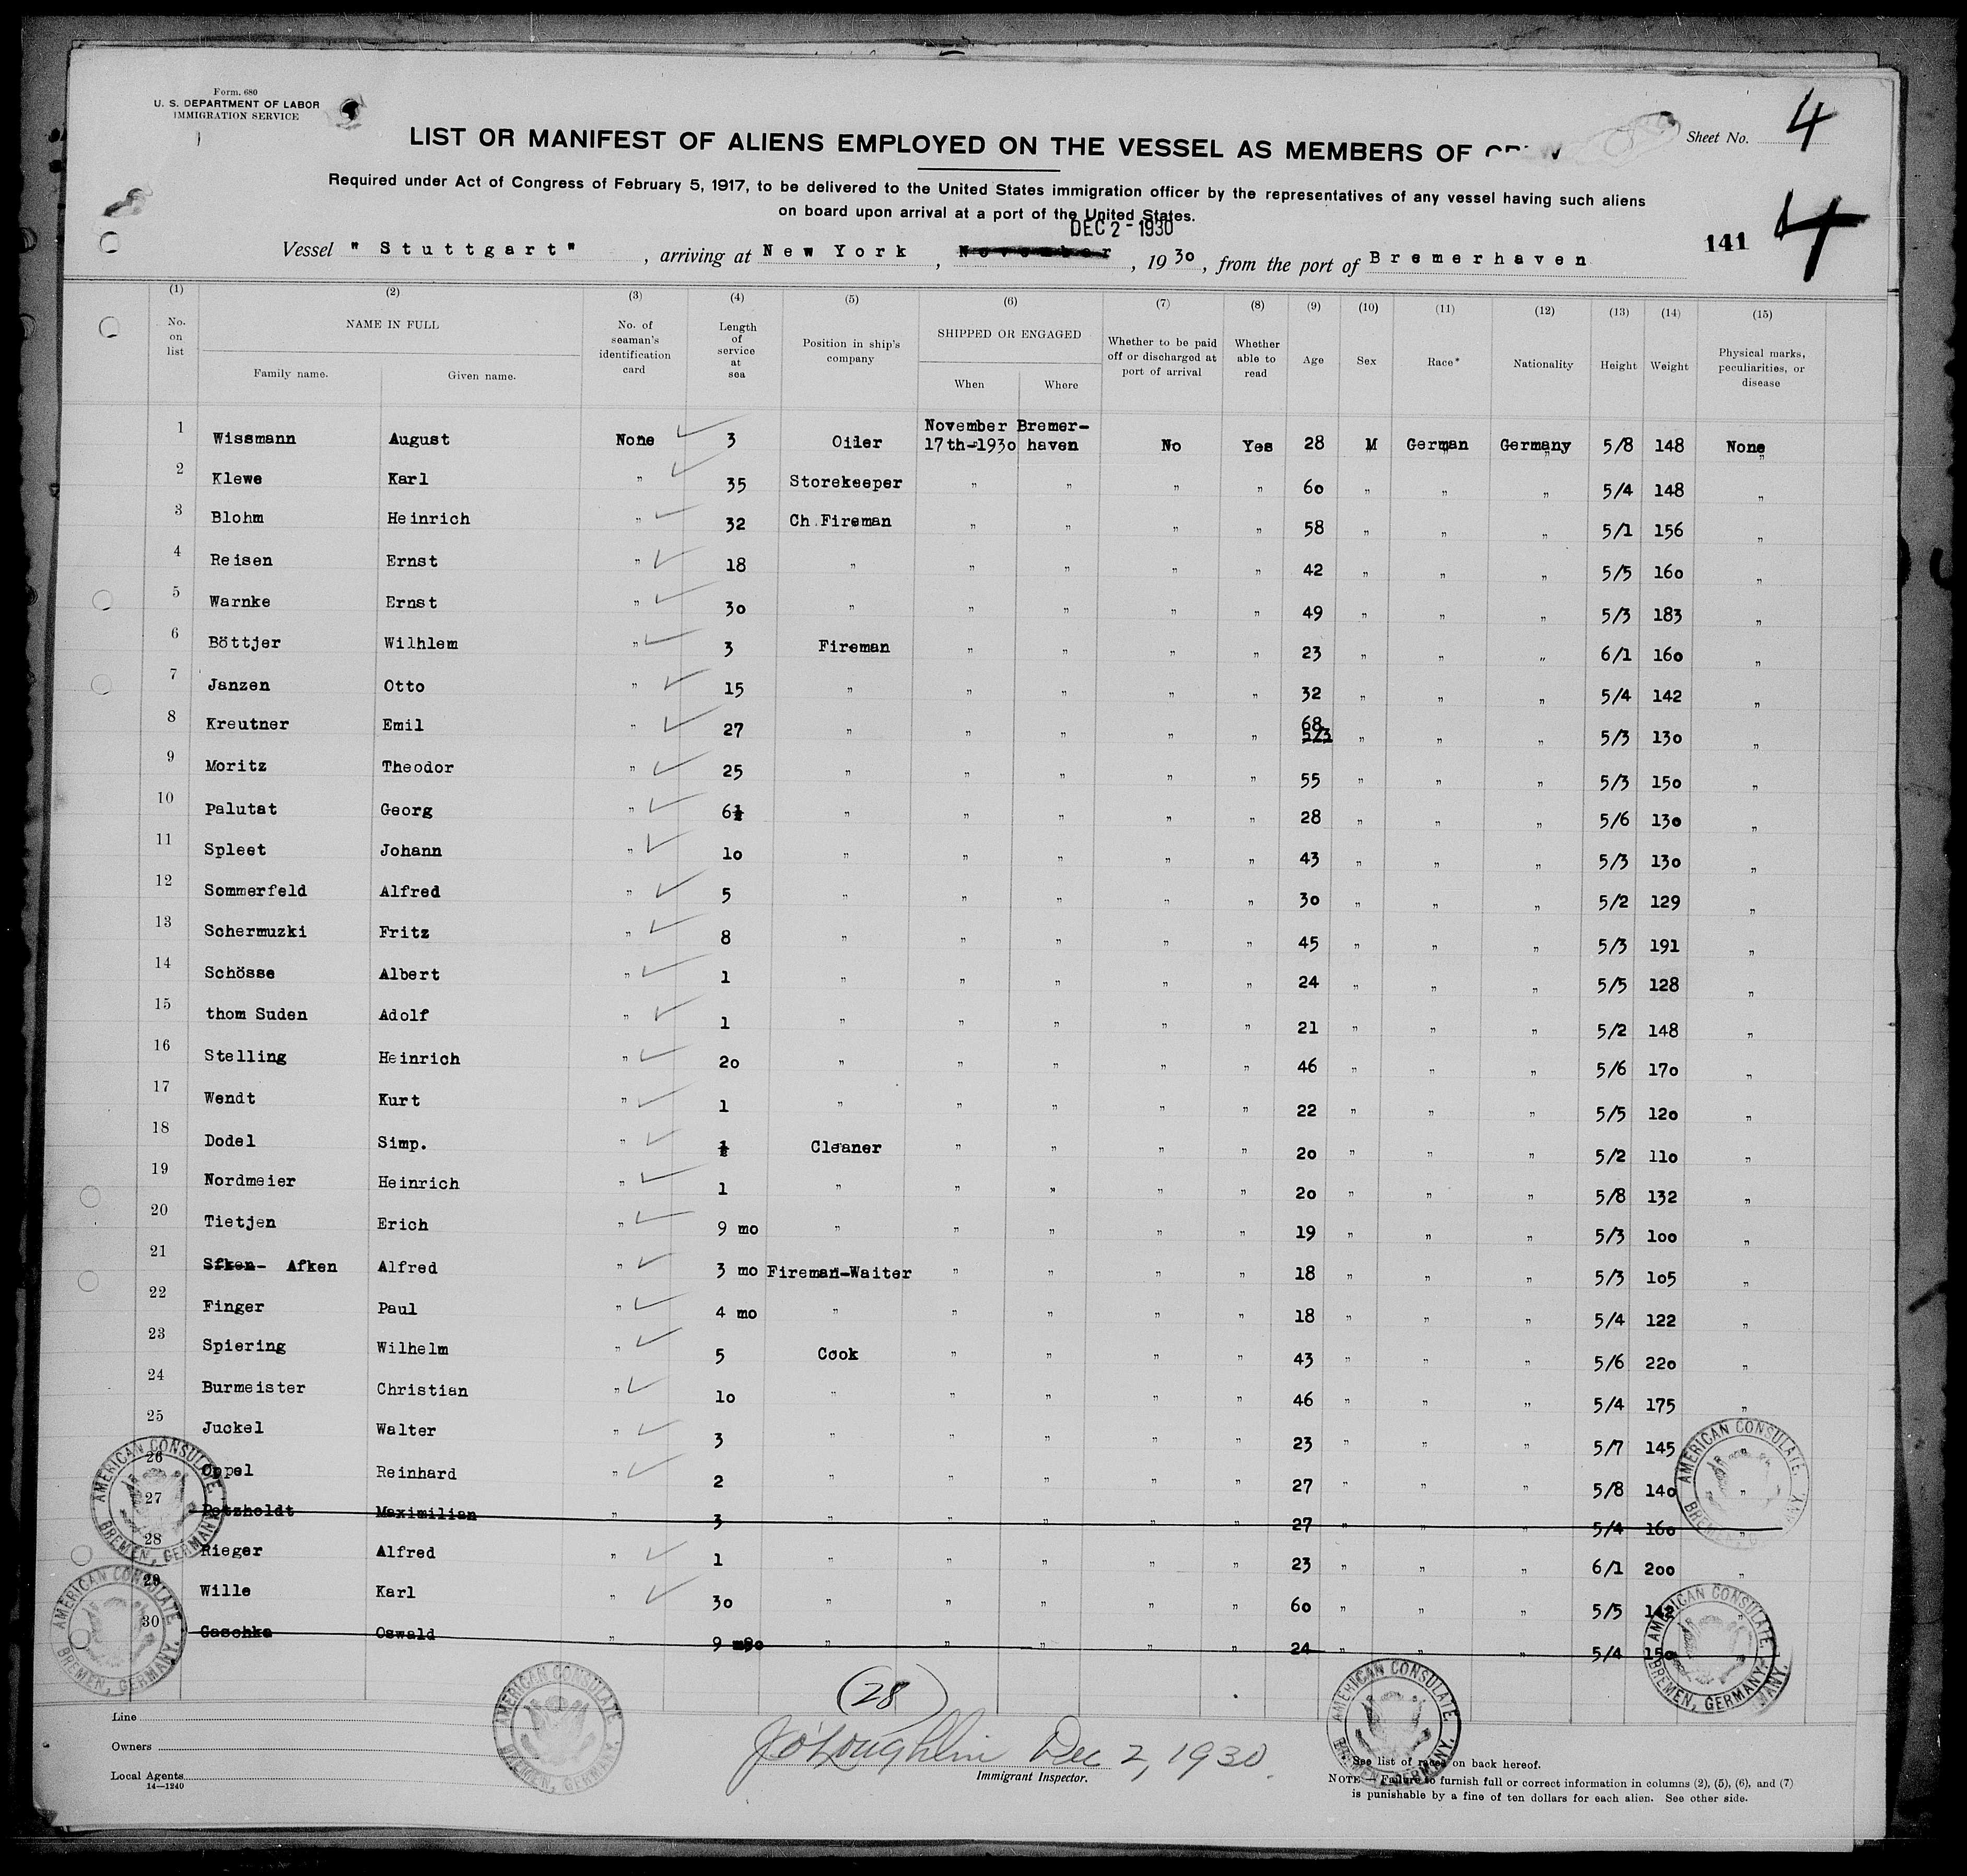 Form. 680
U. S. DEPARTMENT OF LABOR
IMMIGRATION SERVICE
LIST OR MANIFEST OF ALIENS EMPLOYED ON THE VESSEL AS MEMBERS OF
Sheet No. 4
Required under Act of Congress of February 5, 1917, to be delivered to the United States immigration officer by the representatives of any vessel having such aliens
on board upon arrival at a port of the United States.
4
DEC 2 - 1930
141
Vessel "Stuttgart", arriving at New York, November, 1930, from the port of Bremerhaven
(1) (2) (3) (4) (5) (6) (7) (8) (9) (10) (11) (12) (13) (14) (15)
No. on list NAME IN FULL Family name. Given name. No. of seaman's identification card Length of service at sea Position in ship's company SHIPPED OR ENGAGED When Where Whether to be paid off or discharged at port of arrival Whether able to read Age Sex Race* Nationality Height Weight Physical marks, peculiarities, or disease
1 Wissmann August None 3 Oiler November 17th-1930 Bremer-haven No Yes 28 M German Germany 5/8 148 None
2 Klewe Karl " 35 Storekeeper " " " " 60 " " " 5/4 148 "
3 Blohm Heinrich " 32 Ch.Fireman " " " " 58 " " " 5/1 156 "
4 Reisen Ernst " 18 " " " " " 42 " " " 5/5 160 "
5 Warnke Ernst " 30 " " " " " 49 " " " 5/3 183 "
6 Böttjer Wilhlem " 3 Fireman " " " " 23 " " " 6/1 160 "
7 Janzen Otto " 15 " " " " " 32 " " " 5/4 142 "
8 Kreutner Emil " 27 " " " " " 68 5/3 " " " 5/3 130 "
9 Moritz Theodor " 25 " " " " " 55 " " " 5/3 150 "
10 Palutat Georg " 6½ " " " " " 28 " " " 5/6 130 "
11 Spleet Johann " 10 " " " " " 43 " " " 5/3 130 "
12 Sommerfeld Alfred " 5 " " " " " 30 " " " 5/2 129 "
13 Schermuzki Fritz " 8 " " " " " 45 " " " 5/3 191 "
14 Schösse Albert " 1 " " " " " 24 " " " 5/5 128 "
15 thom Suden Adolf " 1 " " " " " 21 " " " 5/2 148 "
16 Stelling Heinrich " 20 " " " " " 46 " " " 5/6 170 "
17 Wendt Kurt " 1 " " " " " 22 " " " 5/5 120 "
18 Dodel Simp. " ½ Cleaner " " " " 20 " " " 5/2 110 "
19 Nordmeier Heinrich " 1 " " " " " 20 " " " 5/8 132 "
20 Tietjen Erich " 9 mo " " " " " 19 " " " 5/3 100 "
21 Sfken- Afken Alfred " 3 mo Fireman-Waiter " " " " 18 " " " 5/3 105 "
22 Finger Paul " 4 mo " " " " " 18 " " " 5/4 122 "
23 Spiering Wilhelm " 5 Cook " " " " 43 " " " 5/6 220 "
24 Burmeister Christian " 10 " " " " " 46 " " " 5/4 175 "
25 Juckel Walter " 3 " " " " " 23 " " " 5/7 145 "
26 Oppel Reinhard " 2 " " " " " 27 " " " 5/8 140 "
27 Petzholdt Maximilian " 3 " " " " " 27 " " " 5/4 160 "
28 Rieger Alfred " 1 " " " " " 23 " " " 6/1 200 "
29 Wille Karl " 30 " " " " " 60 " " " 5/5 142 "
30 Gaschka Oswald " 9 " " " " " 24 " " " 5/4 150
AMERICAN CONSULATE, BREMEN, GERMANY.
AMERICAN CONSULATE, BREMEN, GERMANY.
AMERICAN CONSULATE, BREMEN, GERMANY.
AMERICAN CONSULATE, BREMEN, GERMANY.
AMERICAN CONSULATE, BREMEN, GERMANY.
AMERICAN CONSULATE, BREMEN, GERMANY.
(28)
Line
Owners
Local Agents
14—1240
J O'Loughlin Dec 2, 1930.
Immigrant Inspector.
See list of races on back hereof.
NOTE.—Failure to furnish full or correct information in columns (2), (5), (6), and (7)
is punishable by a fine of ten dollars for each alien. See other side.